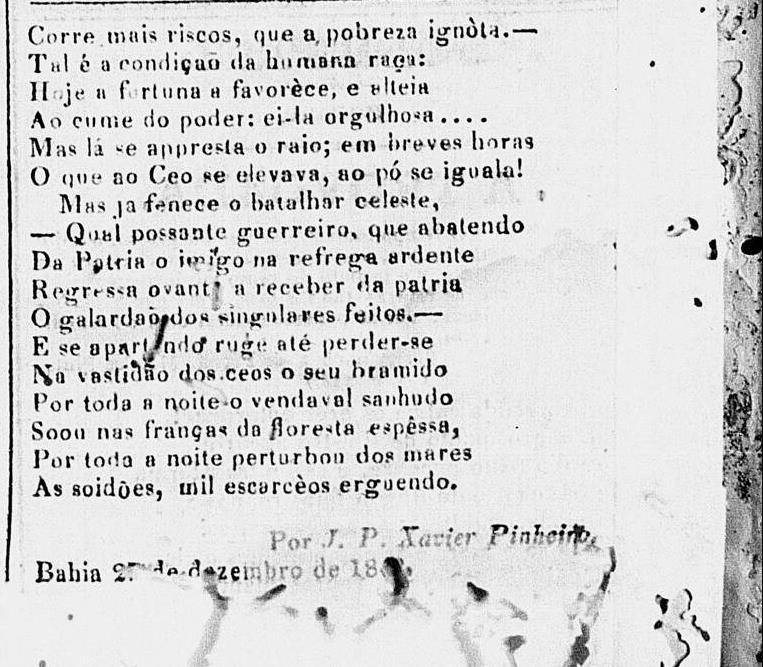 Corre mais riscos, que a pobreza ignòta.—
Tal é a condiçaõ da humana raça:
Hoje a fortuna a favorèce, e alteia
Ao cume do poder: ei-la orgulhosa....
Mas lá se appresta o raio; em breves horas
O que ao Ceo se elevava, ao pó se iguala!
Mas ja fenece o batalhar celeste,
— Qual possante guerreiro, que abatendo
Da Patria o imigo na refrega ardente
Regressa ovante a receber da patria
O galardaõ dos singulares feitos.—
E se apartando ruge até perder-se
Na vastidão dos ceos o seu bramido
Por toda a noite o vendaval sanhudo
Soou nas franças da floresta espêssa,
Por toda a noite perturbou dos mares
As soidões, mil escarcèos erguendo.
Por J. P. Xavier Pinheiro,
Bahia de dezembro de